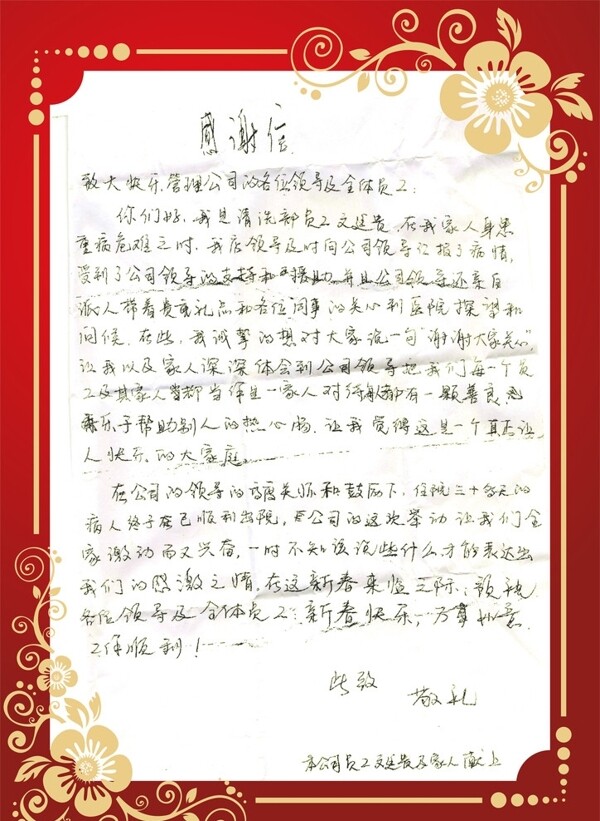 感谢信
致大快乐管理公司的各位领导及全体员工：
你们好，我是清洗部员工文廷贵，在我家人身患
重病危难之时，我店领导及时向公司领导汇报了病情，
受到了公司领导的支持和援助，并且公司领导还亲自
派人带着贵重礼品和各位同事的关心到医院探望和
问候。在此，我诚挚的想对大家说一句“谢谢大家关心”
让我以及家人深深体会到公司领导把我们每一个员
工及其家人当作是一家人对待都有一颗善良
乐于帮助别人的热心肠，让我觉得这是一个真正让
人快乐的大家庭
在公司的领导的高度关怀和鼓励下，住院三十多天的
病人终于在已顺利出院，公司的这次举动让我们全
家激动而又兴奋，一时不知该说些什么才能表达出
我们的感激之情，在这新春来临之际，预祝
各位领导及全体员工：新春快乐，万事如意
工作顺利！
此致
敬礼
本公司员工文廷贵及家人献上